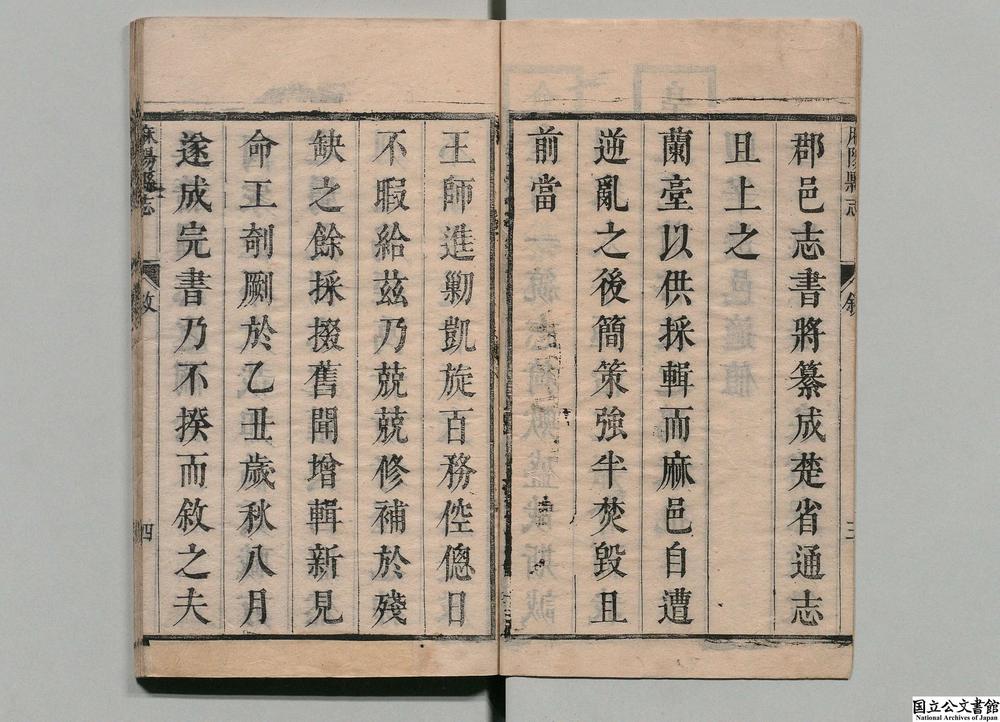 麻陽縣志
敘
三
郡邑志書將纂成楚省通志
且上之
蘭臺以供採輯而麻邑自遭
逆亂之後簡策強半焚毀且
前當
王師進剿凱旋百務倥傯日
不暇給茲乃兢兢修補於殘
缺之餘採掇舊聞增輯新見
命工剞劂於乙丑歲秋八月
遂成完書乃不揆而敘之夫
麻陽縣志
敘
四
国立公文書館
National Archives of Japan